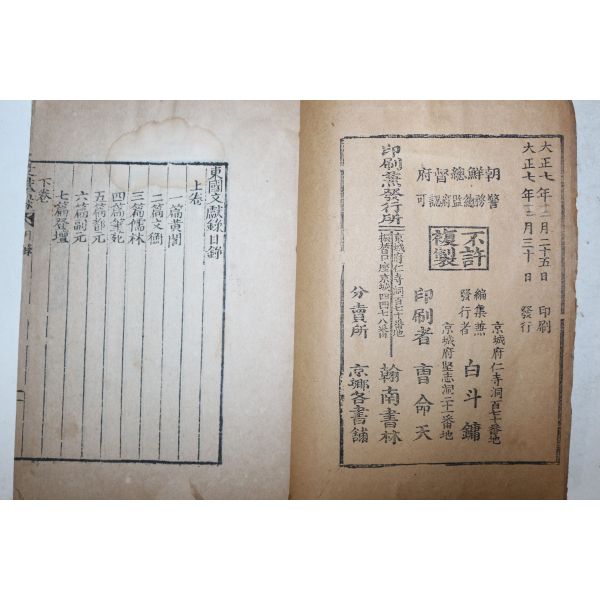 大正七年 月二十五日 印刷
大正七年 月三十日 發行
朝鮮總督府
警務總監府認可
不許
複製
京城府仁寺洞百七十番地
編集兼
發行者 白斗鏞
京城府堅志洞 番地
印刷者 曺命天
印刷兼發行所
京城府仁寺洞百七十番地
振替口座京城四四七八番
翰南書林
分賣所 京鄉各書舖
東國文獻錄目錄
上卷
一篇黃閣
二篇文衡
三篇儒林
四篇
五篇都元
六篇副元
七篇登壇
下卷